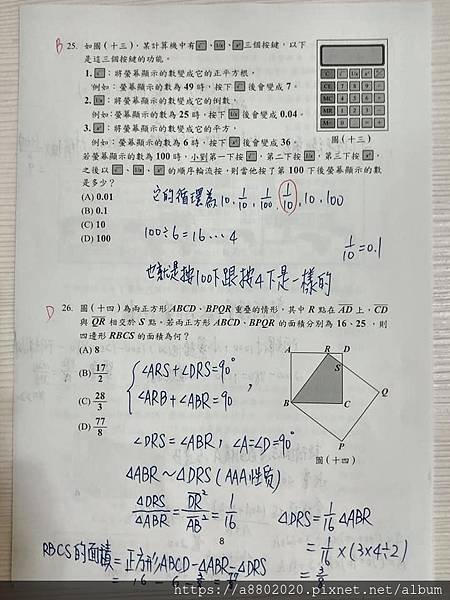 B 25. 如圖(十三)，某計算機中有√、1/x、x²三個按鍵，以下
是這三個按鍵的功能。
1. √：將螢幕顯示的數變成它的正平方根，
例如：螢幕顯示的數為49時，按下√後會變成7。
2. 1/x：將螢幕顯示的數變成它的倒數，
例如：螢幕顯示的數為25時，按下1/x後會變成0.04。
3. x²：將螢幕顯示的數變成它的平方，
例如：螢幕顯示的數為6時，按下x²後會變成36。
圖(十三)
若螢幕顯示的數為100時，小剛第一下按√，第二下按1/x，第三下按x²，
之後以√、1/x、x²的順序輪流按，則當他按了第100下後螢幕顯示的數
是多少？
(A) 0.01
(B) 0.1
(C) 10
(D) 100
它的循環為10, 1/10, 1/100, 1/10, 10, 100
100÷6=16…4
1/10=0.1
也就是按100下跟按4下是一樣的
D 26. 圖(十四)為兩正方形ABCD、BPQR重疊的情形，其中R點在AD上，CD
與QR相交於S點。若兩正方形ABCD、BPQR的面積分別為16、25，則
四邊形RBCS的面積為何？
(A) 8
(B) 17/2
(C) 28/3
(D) 77/8
A R D
S
B C Q
P
圖(十四)
∠ARS+∠DRS=90°
∠ARB+∠ABR=90
,
∠DRS=∠ABR, ∠A=∠D=90°
△ABR~△DRS(AAA性質)
△DRS/△ABR=DR²/AB²=1/16
△DRS=1/16△ABR
=1/16×(3×4÷2)
=3/8
8
RBCS的面積=正方形ABCD-△ABR-△DRS
=16-6-3/8=77/8
https://a8802020.pixnet.net/album